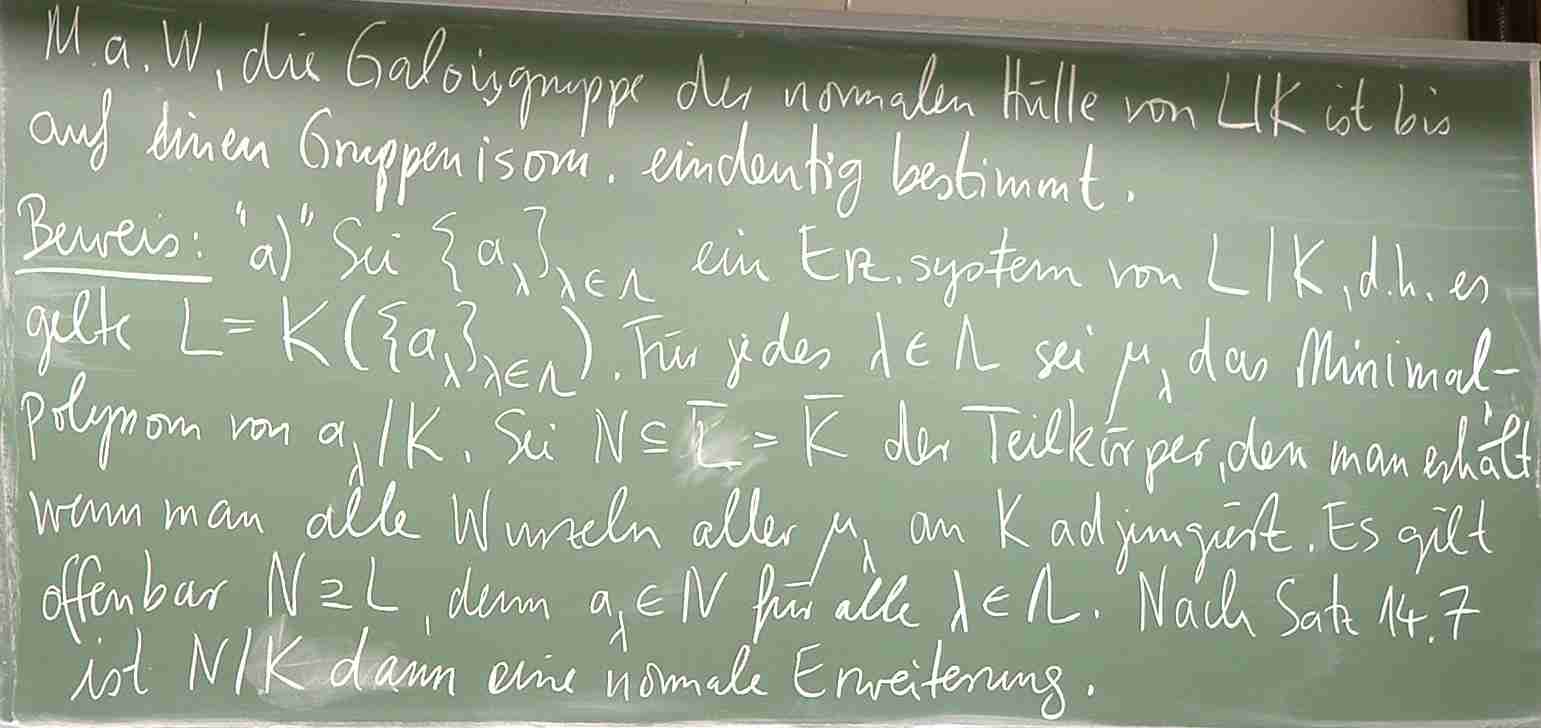 M.a.W, die Galoisgruppe der normalen Hülle von L|K ist bis
auf einen Gruppenisom. eindeutig bestimmt.
Beweis: "a)" Sei {a_λ}_{λ∈Λ} ein Erz.system von L/K, d.h. es
gelte L = K({a_λ}_{λ∈Λ}). Für jedes λ∈Λ sei μ_λ das Minimal-
polynom von a_λ/K. Sei N ⊆ L̅ = K̅ der Teilkörper, den man erhält
wenn man alle Wurzeln aller μ_λ an K adjungiert. Es gilt
offenbar N ⊇ L, denn a_λ ∈ N für alle λ∈Λ. Nach Satz 14.7
ist N/K dann eine normale Erweiterung.